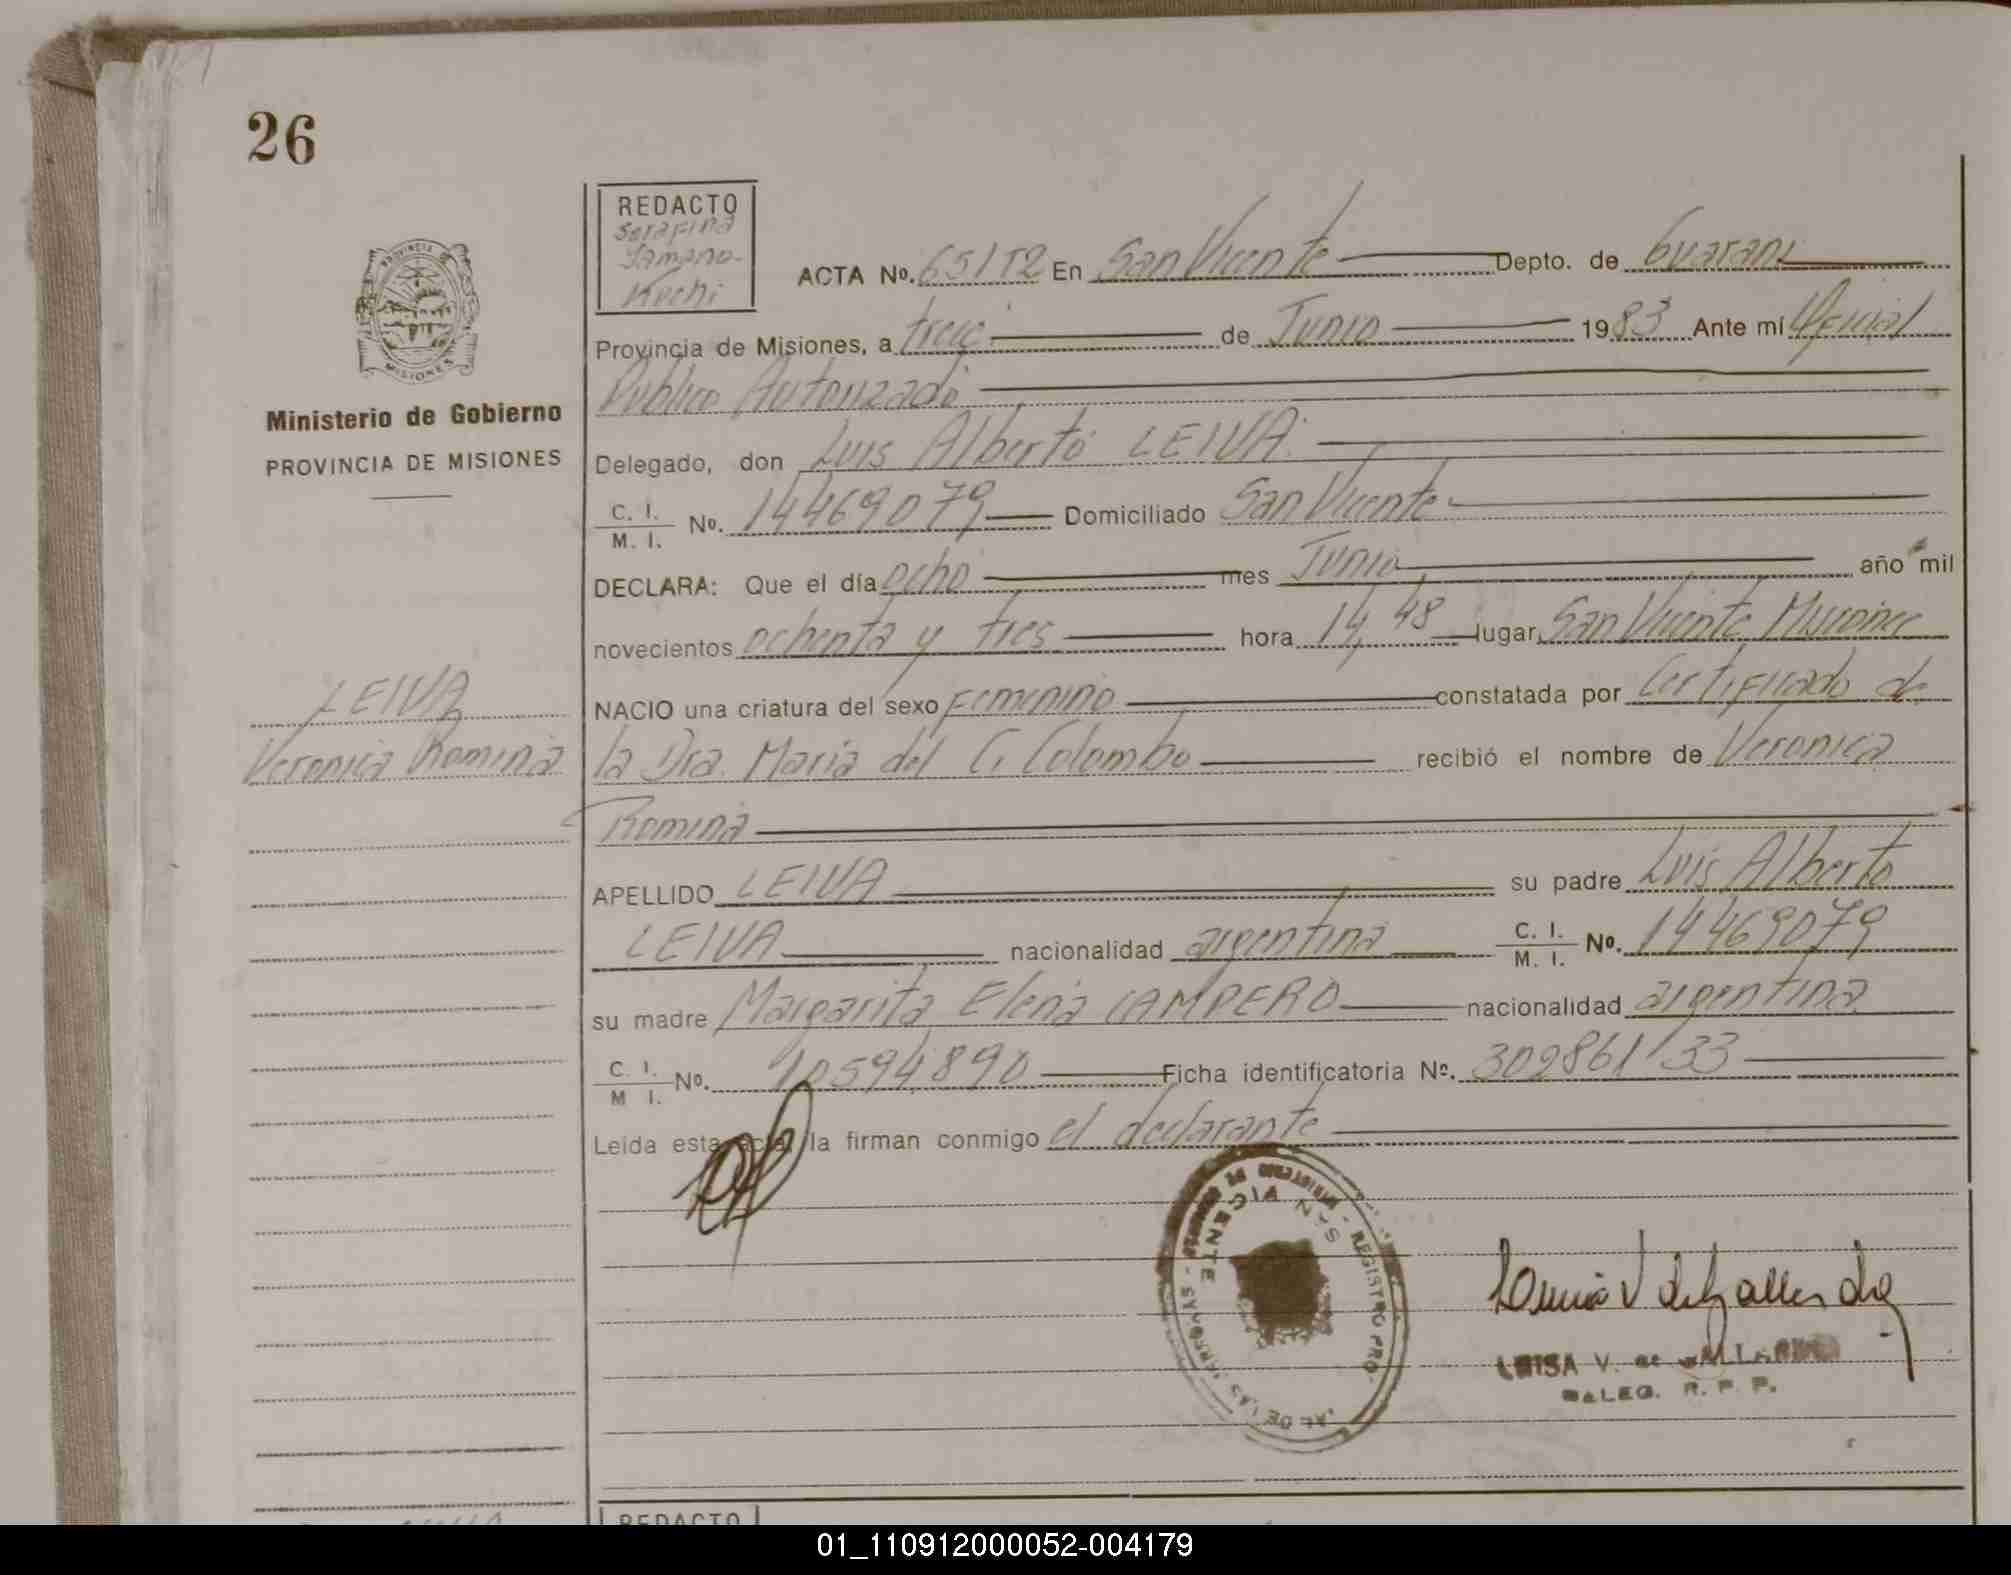 26
REDACTO
Serafina
Kochi
ACTA No. 65/T2 En San Vicente Depto. de Guaraní
Provincia de Misiones, a trece de Junio 1983 Ante mí Oficial
Público Autorizado
Delegado, don Luis Alberto LEIVA.
C. I. / M. I. No. 14469079 Domiciliado San Vicente
DECLARA: Que el día ocho mes Junio año mil
novecientos ochenta y tres hora 14,48 lugar San Vicente Misiones
NACIO una criatura del sexo Femenino constatada por Certificado de
la Dra. María del C. Colombo recibió el nombre de Veronica
Romina
APELLIDO LEIVA su padre Luis Alberto
LEIVA nacionalidad argentina C. I. / M. I. No. 14469079
su madre Margarita Elena CAMPERO nacionalidad argentina
C. I. / M I. No. 10594890 Ficha identificatoria Nº. 302861/33
Leída esta acta, la firman conmigo el declarante
PROVINCIA DE
MISIONES
Ministerio de Gobierno
PROVINCIA DE MISIONES
LEIVA
Veronica Romina
MINISTERIO DE GOBIERNO - REGISTRO PRO
DE LAS PERSONAS -
SAN VICENTE
LUISA V. de GALLARDO
DELEG. R. P. P.
REDACTO
01_110912000052-004179